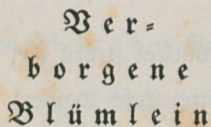 Ver-
borgene
Blümlein